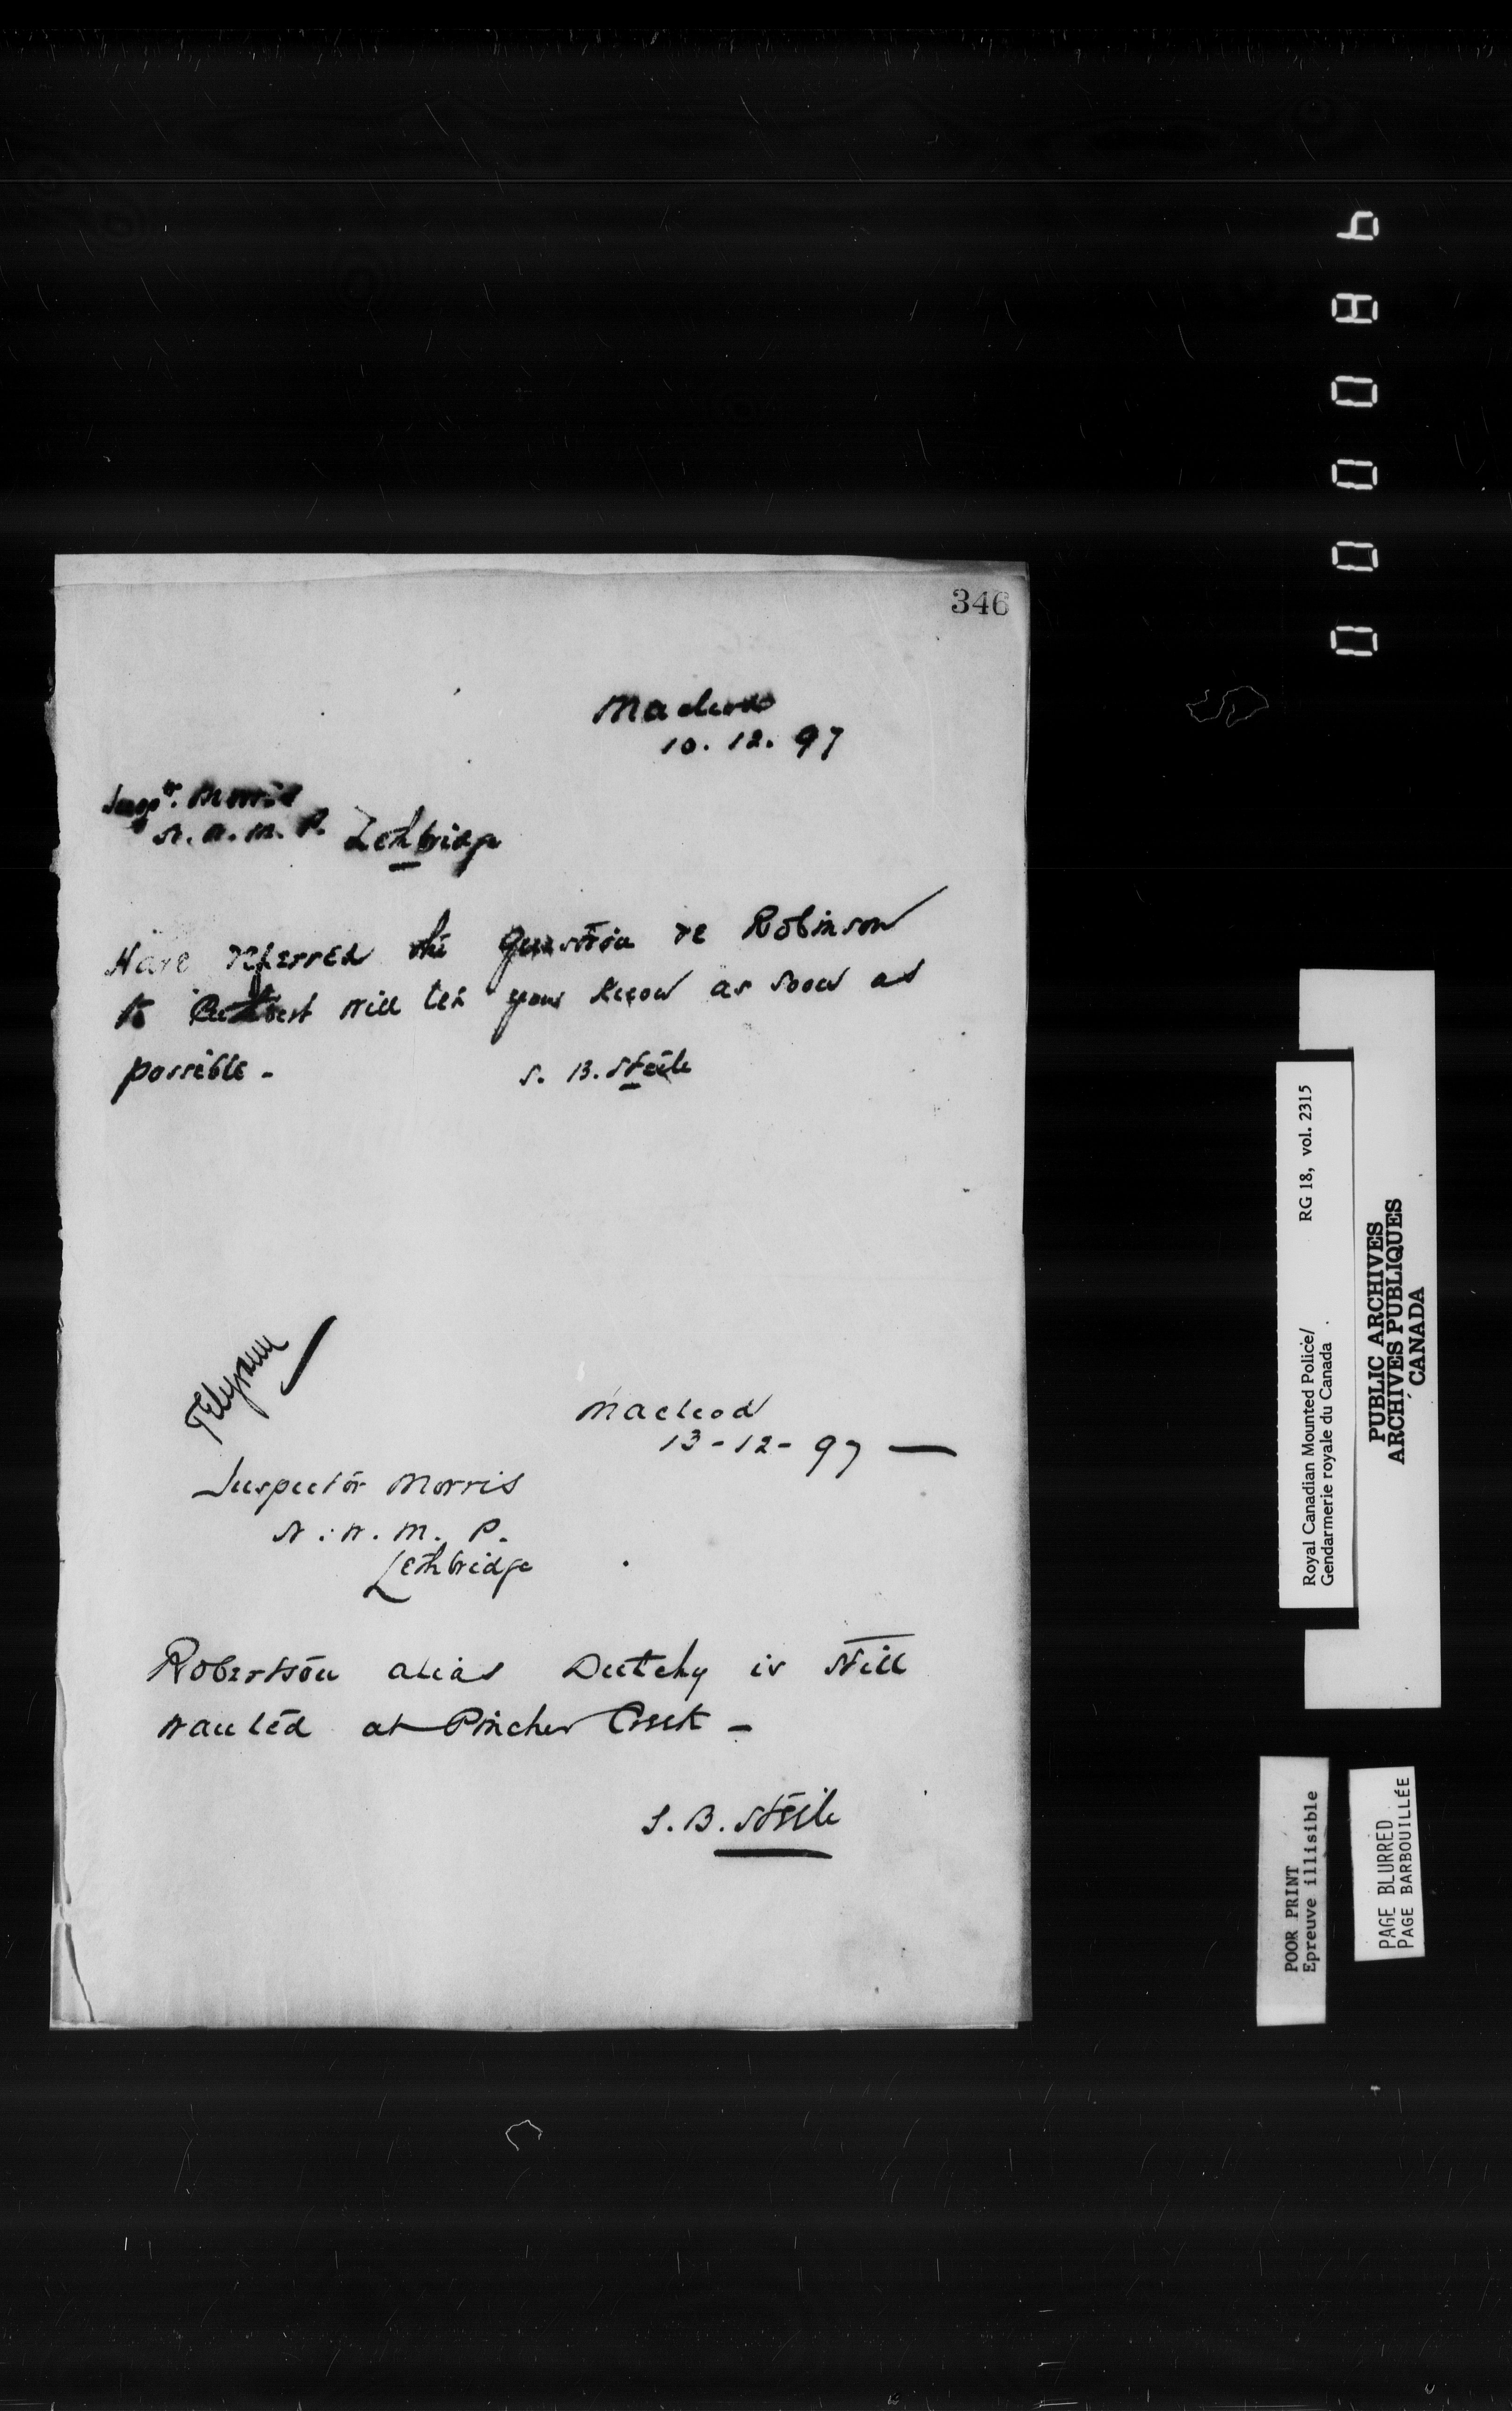 346
Macleod
10. 12. 97
Inspr. Morris
N. W. M. P. Lethbridge
Have referred the question re Robinson
to will let you know as soon as
possible -
S. B. Steele
Telegram
Macleod
13 - 12 - 97 —
Inspector Morris
N. W. M. P.
Lethbridge
Robertson alias Dutchy is still
wanted at Pincher Creek -
S. B. Steele
000086
Royal Canadian Mounted Police/ RG 18, vol. 2315
Gendarmerie royale du Canada
PUBLIC ARCHIVES
ARCHIVES PUBLIQUES
CANADA
POOR PRINT
Epreuve illisible
PAGE BLURRED
PAGE BARBOUILLÉE